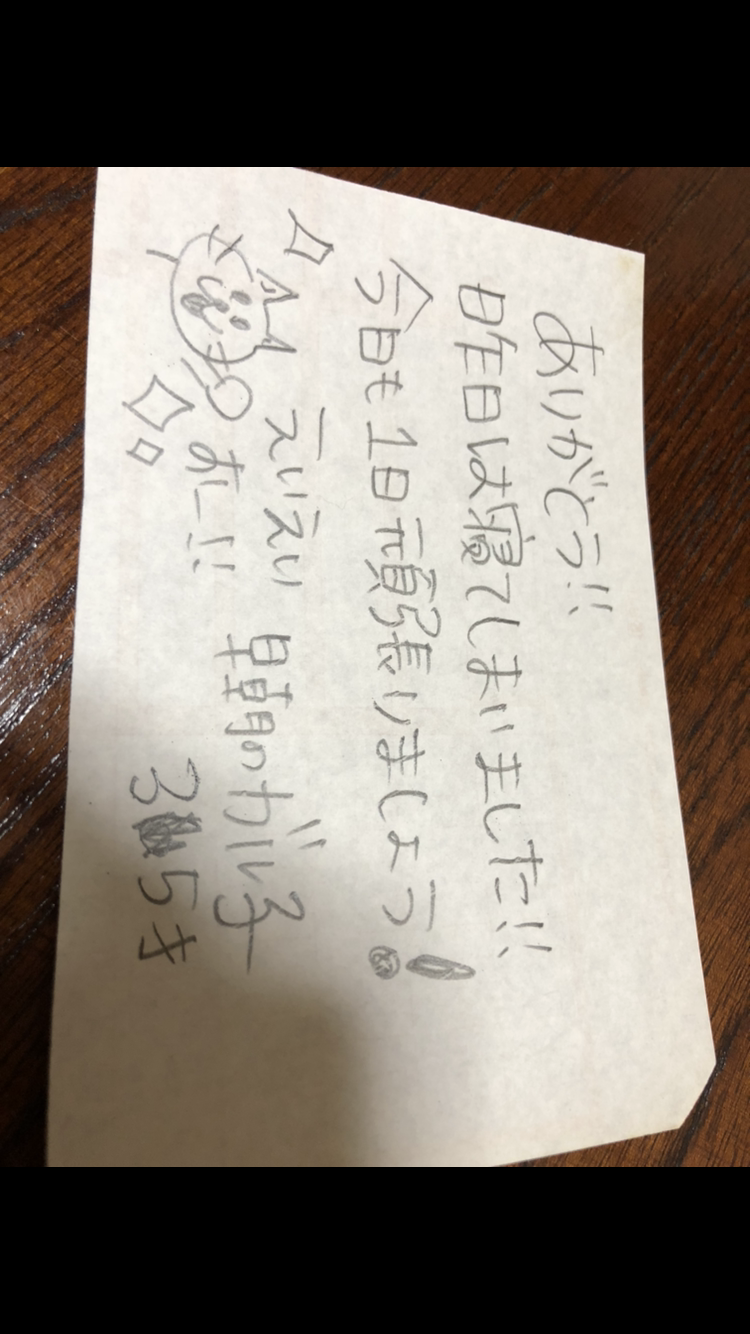 ありがとう!!
昨日は寝てしまいました!!
今日も1日頑張りましょう!
えいえい
おー!!
早朝のガル子
35才